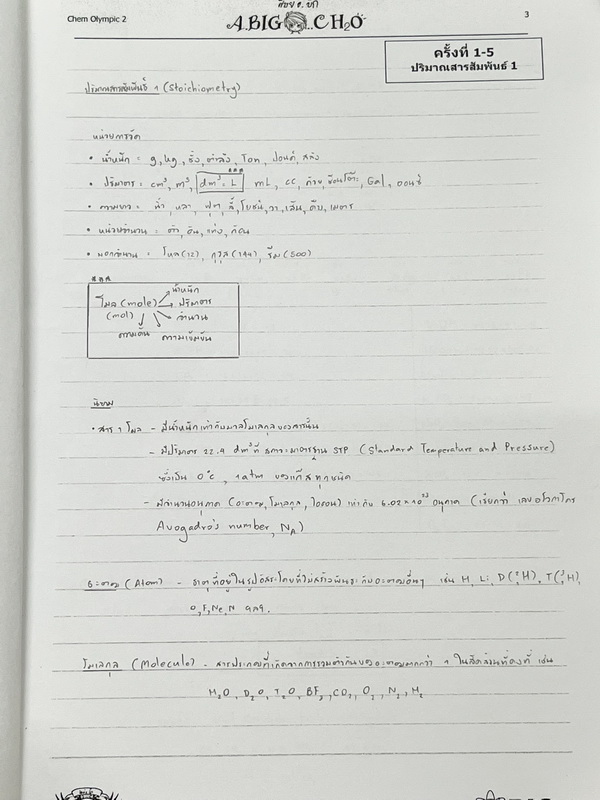 Chem Olympic 2
A.BIG CH₂O
3
ครั้งที่ 1-5
ปริมาณสารสัมพันธ์ 1
ปริมาณสารสัมพันธ์ 1 (Stoichiometry)
หน่วยการวัด
• น้ำหนัก = g, kg, ชั่ง, ตำลึง, Ton, ปอนด์, สลึง
• ปริมาตร = cm³, m³, dm³ = L mL, cc, ถ้วย, ช้อนโต๊ะ, Gal, ออนซ์
• ความยาว = นิ้ว, หลา, ฟุต, ลี้, โยชน์, วา, เส้น, คืบ, เมตร
• หน่วยจำนวน = ตัว, อัน, แท่ง, ก้อน
• บอกจำนวน = โหล(12), กุรุส(144), รีม(500)
น้ำหนัก
โมล (mole) ปริมาตร
(mol) จำนวน
ความดัน ความเข้มข้น
นิยาม
• สาร 1 โมล - มีน้ำหนักเท่ากับมวลโมเลกุลของสารนั้น
- มีปริมาตร 22.4 dm³ ที่ สภาวะมาตรฐาน STP (Standard Temperature and Pressure)
ซึ่งเป็น 0°C, 1 atm ของแก๊สทุกชนิด
- มีจำนวนอนุภาค (อะตอม, โมเลกุล, ไอออน) เท่ากับ 6.02×10²³ อนุภาค (เรียกว่า เลขอโวกาโดร
Avogadro's number, N_A)
อะตอม (Atom) - ธาตุที่อยู่ในรูปอิสระโดยที่ไม่สร้างพันธะกับอะตอมอื่นๆ เช่น H, Li, D(²₁H), T(³₁H),
O, F, Ne, N ฯลฯ.
โมเลกุล (Molecule) - สารประกอบที่เกิดจากการรวมตัวกันของอะตอมมากกว่า 1 ในสัดส่วนที่คงที่ เช่น
H₂O, D₂O, T₂O, BF₃, CO₂, O₂, N₂, H₂